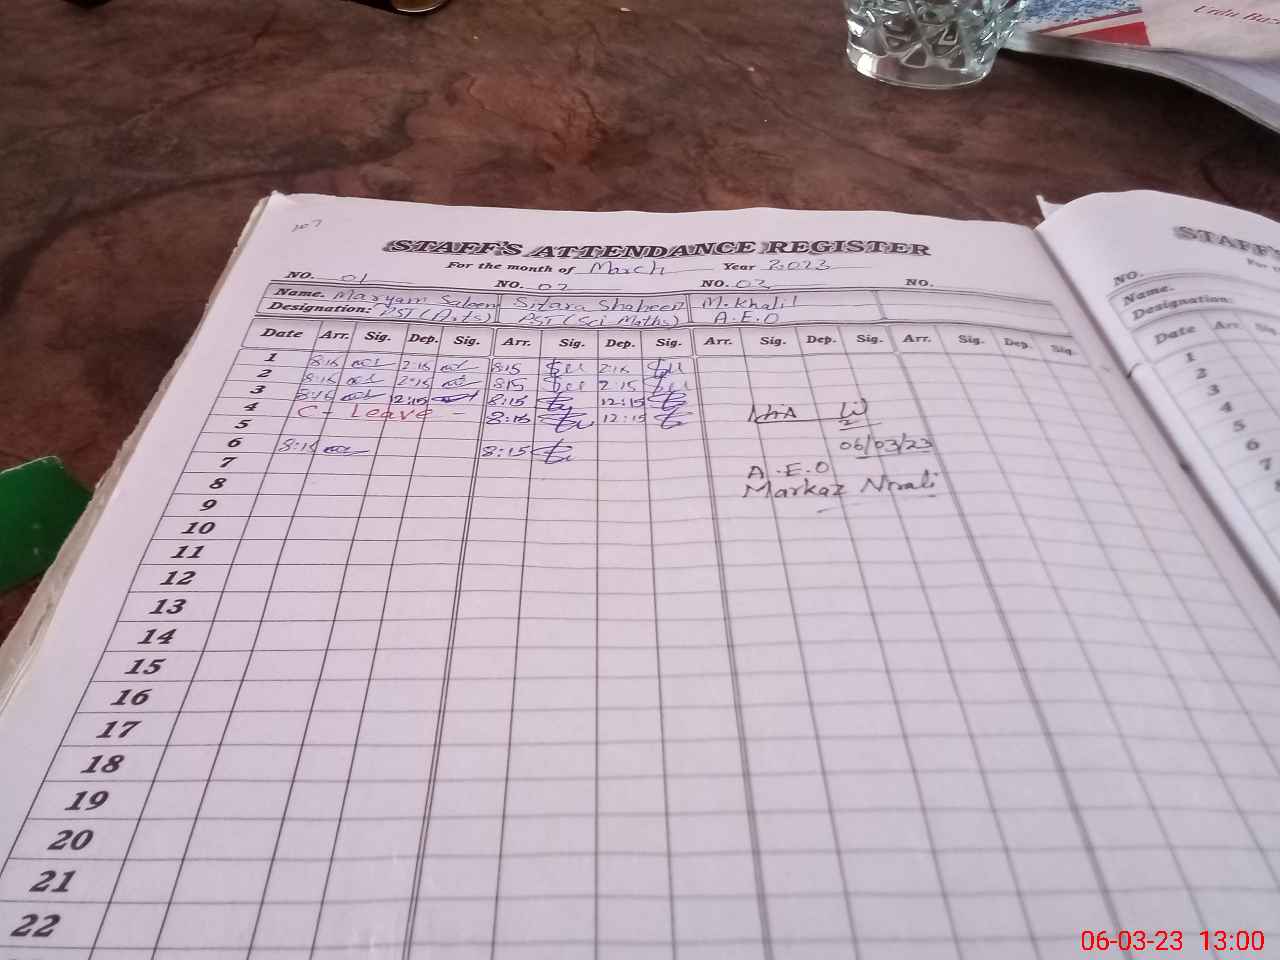 Urdu Bas
107
STAFF'S ATTENDANCE REGISTER
For the month of March Year 2023
NO. 01 NO. 02 NO. 03 NO.
Name. Maryam Saleem Sitara Shaheen M. Khalil
Designation: PST (Arts) PST (Sci Maths) A.E.O
Date Arr. Sig. Dep. Sig. Arr. Sig. Dep. Sig. Arr. Sig. Dep. Sig. Arr. Sig. Dep. Sig.
1 8:15 2:15 8:15 2:15
2 8:15 2:15 8:15 2:15
3 8:15 12:15 8:15 12:15
4 C - Leave - 8:15 12:15
5
6 8:15 8:15 06/03/23
7 A.E.O
8 Markaz
9
10
11
12
13
14
15
16
17
18
19
20
21
22
STAFF'S
For
NO.
Name.
Designation:
Date Arr
1
2
3
4
5
6
7
06-03-23 13:00